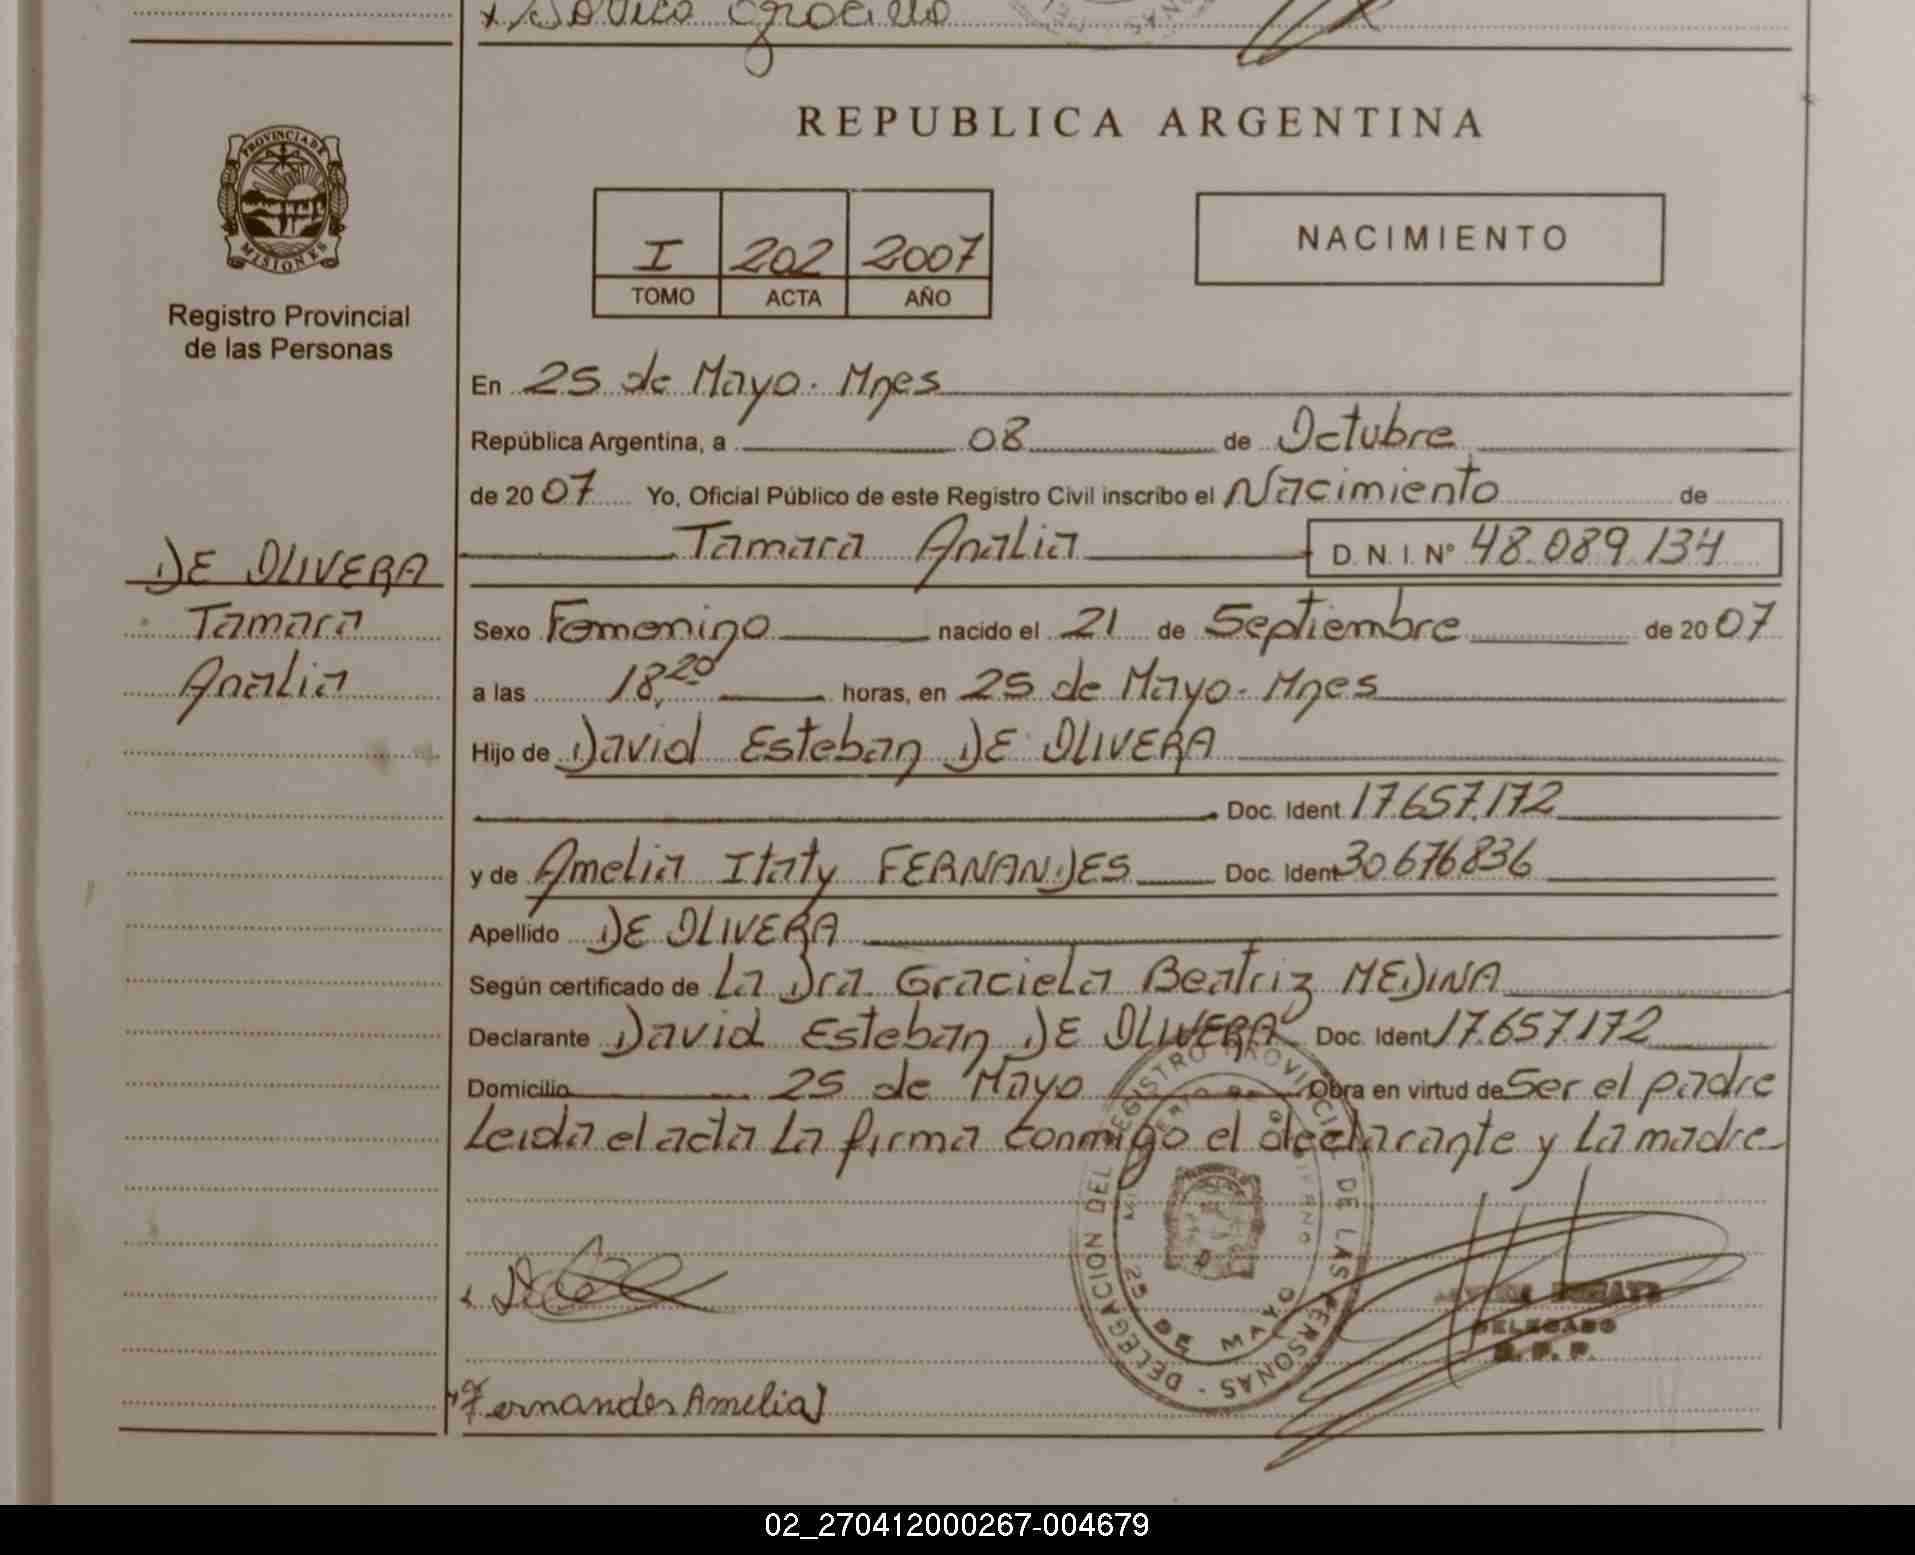 REPUBLICA ARGENTINA
PROVINCIA DE
MISIONES
Registro Provincial
de las Personas
I 202 2007
TOMO ACTA AÑO
NACIMIENTO
En 25 de Mayo. Mnes
República Argentina, a 08 de Octubre
de 2007 Yo, Oficial Público de este Registro Civil inscribo el Nacimiento de
Tamara Analia D. N. I. Nº 48.089.134
DE OLIVERA
Tamara
Analia
Sexo Femenino nacido el 21 de Septiembre de 2007
a las 18,20 horas, en 25 de Mayo. Mnes
Hijo de David Esteban DE OLIVERA
Doc. Ident. 17.657.172
y de Amelia Itaty FERNANDES Doc. Ident. 30.676.836
Apellido DE OLIVERA
Según certificado de La Dra. Graciela Beatriz MEDINA
Declarante David Esteban DE OLIVERA Doc. Ident. 17.657.172
Domicilio 25 de Mayo Obra en virtud de Ser el padre
Leida el acta la firma conmigo el declarante y la madre
REGISTRO PROVINCIAL DE LAS PERSONAS - DELEGACION DEL
25 DE MAYO
DELEGADO
R. P. P.
Fernandes Amelia I
02_270412000267-004679